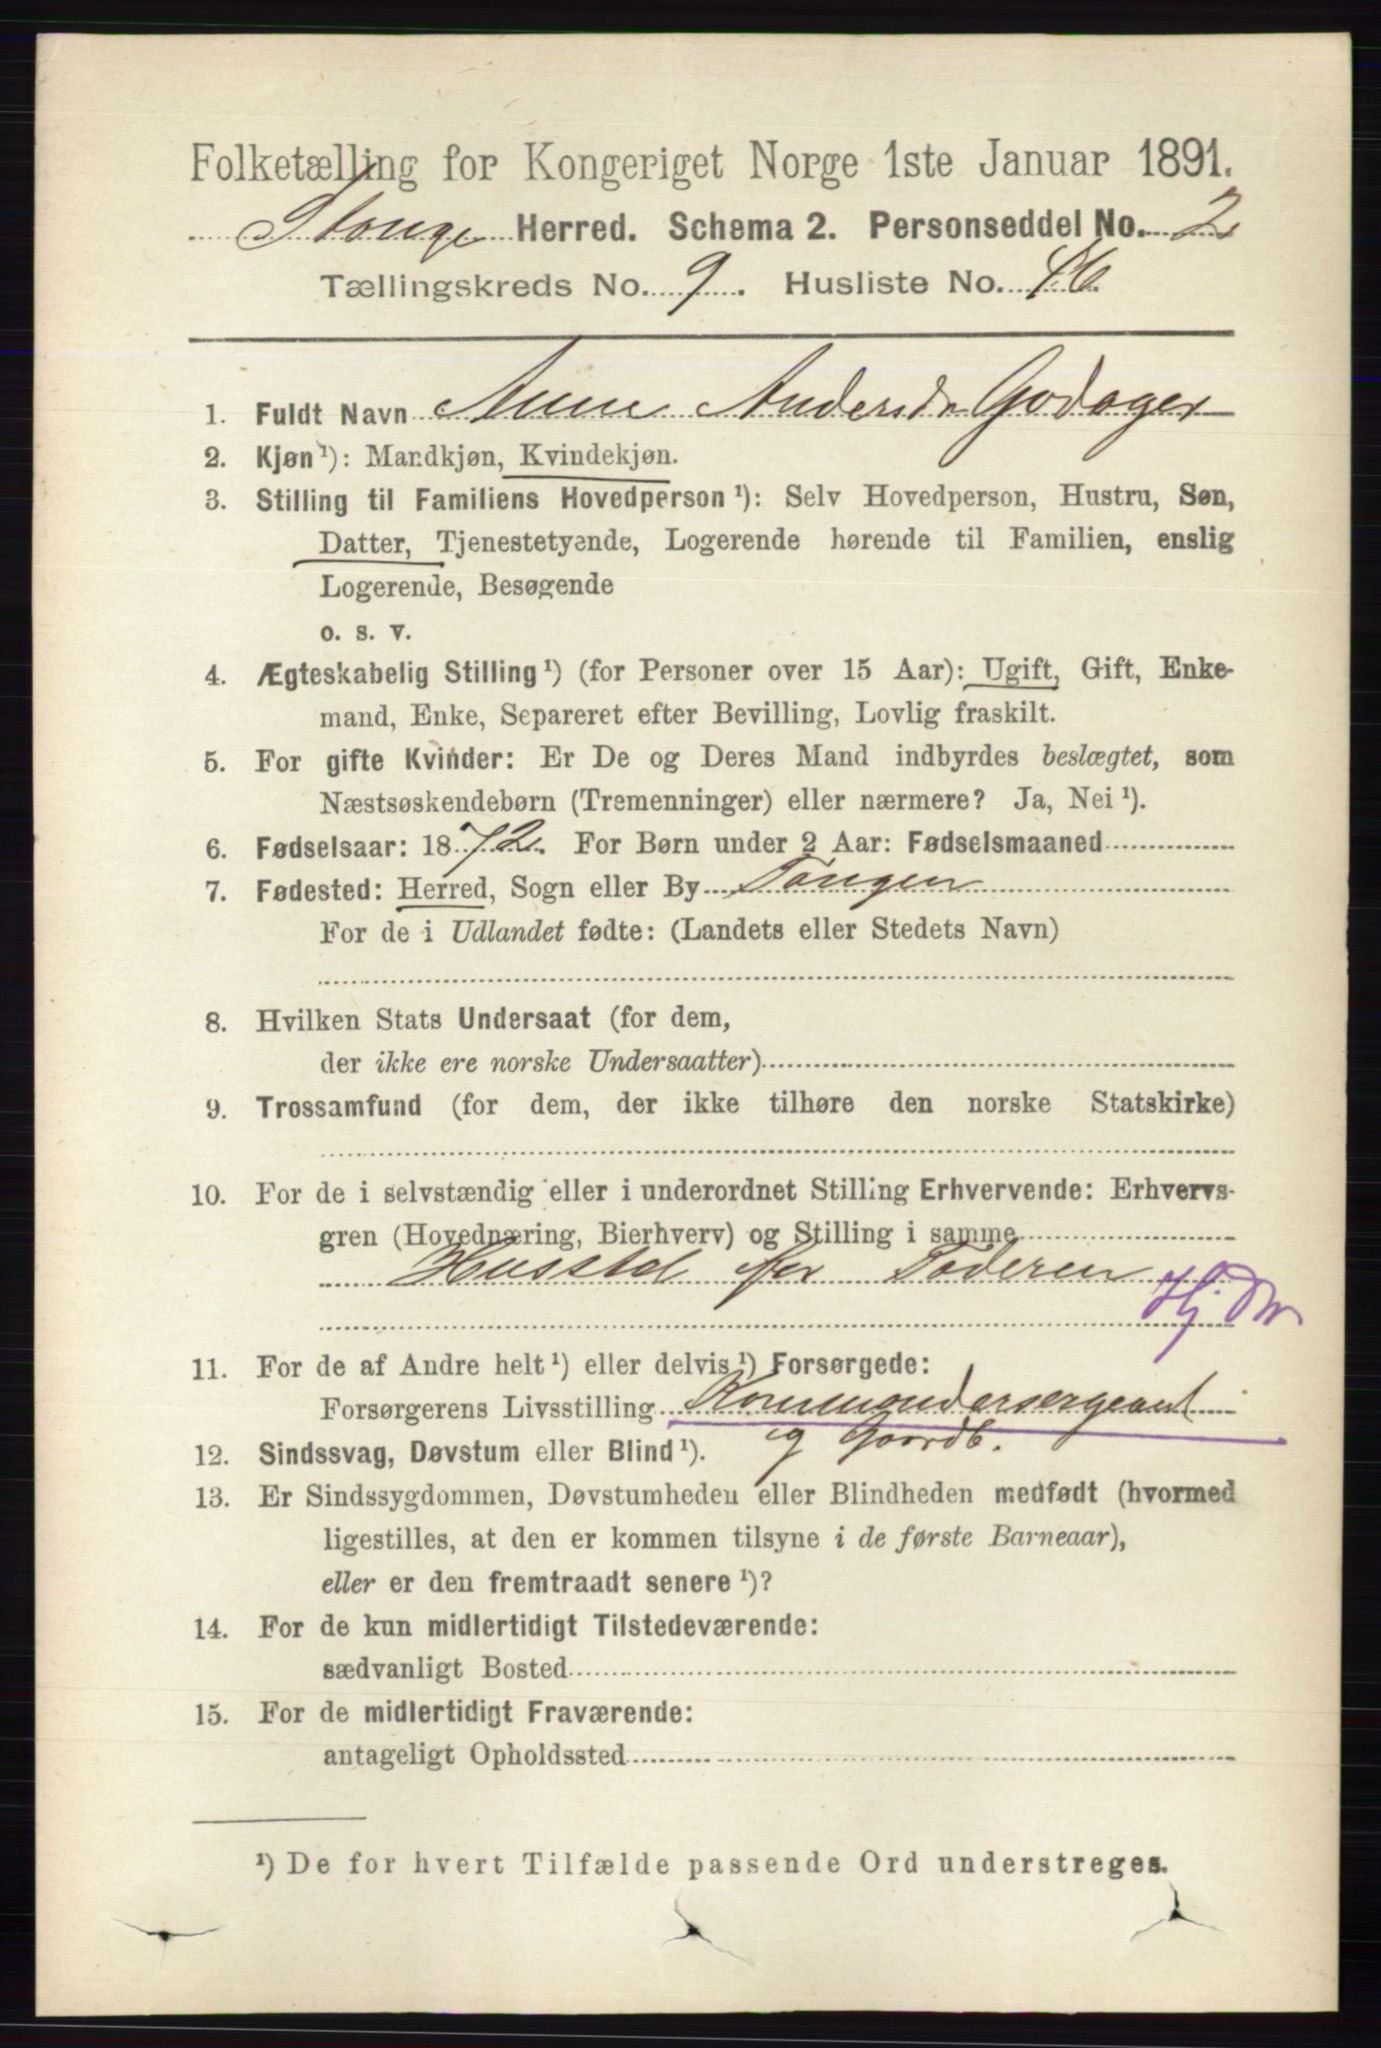 Folketælling for Kongeriget Norge 1ste Januar 1891.
Stange Herred. Schema 2. Personseddel No. 2
Tællingskreds No. 9. Husliste No. 46.
1. Fuldt Navn Anne Andersdr Godager
2. Kjøn ¹): Mandkjøn, Kvindekjøn.
3. Stilling til Familiens Hovedperson ¹): Selv Hovedperson, Hustru, Søn,
Datter, Tjenestetyende, Logerende hørende til Familien, enslig
Logerende, Besøgende
o. s. v.
4. Ægteskabelig Stilling ¹) (for Personer over 15 Aar): Ugift, Gift, Enke-
mand, Enke, Separeret efter Bevilling, Lovlig fraskilt.
5. For gifte Kvinder: Er De og Deres Mand indbyrdes beslægtet, som
Næstsøskendebørn (Tremenninger) eller nærmere? Ja, Nei ¹).
6. Fødselsaar: 1872. For Børn under 2 Aar: Fødselsmaaned
7. Fødested: Herred, Sogn eller By Tangen
For de i Udlandet fødte: (Landets eller Stedets Navn)
8. Hvilken Stats Undersaat (for dem,
der ikke ere norske Undersaatter)
9. Trossamfund (for dem, der ikke tilhøre den norske Statskirke)
10. For de i selvstændig eller i underordnet Stilling Erhvervende: Erhvervs-
gren (Hovednæring, Bierhverv) og Stilling i samme
Husstel for Faderen
Hj Dtr
11. For de af Andre helt ¹) eller delvis ¹) Forsørgede:
Forsørgerens Livsstilling Kommandersergeant
og Gaardb.
12. Sindssvag, Døvstum eller Blind ¹).
13. Er Sindssygdommen, Døvstumheden eller Blindheden medfødt (hvormed
ligestilles, at den er kommen tilsyne i de første Barneaar),
eller er den fremtraadt senere ¹)?
14. For de kun midlertidigt Tilstedeværende:
sædvanligt Bosted
15. For de midlertidigt Fraværende:
antageligt Opholdssted
¹) De for hvert Tilfælde passende Ord understreges.